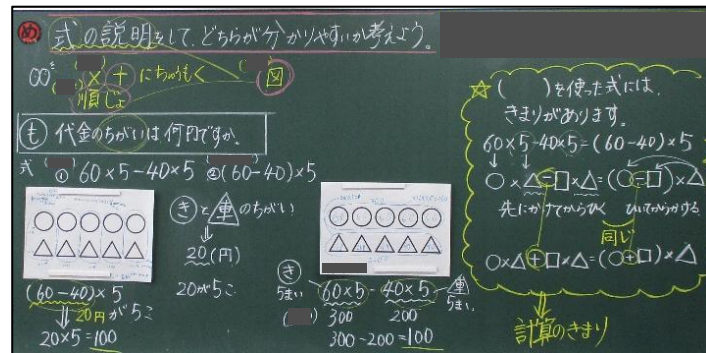 め 式の説明をして、どちらが分かりやすいか考えよう。
× + にちゅうもく
順じょ
図
も 代金のちがいは何円ですか。
式 ① 60×5-40×5 ② (60-40)×5
き と 重 のちがい
20(円)
20が5こ
(60-40)×5
20円が5こ
20×5=100
き
5まい 60×5-40×5 重 5まい
300 200
300-200=100
☆( )を使った式には、
きまりがあります。
60×5-40×5=(60-40)×5
○×△-□×△=(○-□)×△
先にかけてからひく ひいてからかける
同じ
○×△+□×△=(○+□)×△
計算のきまり